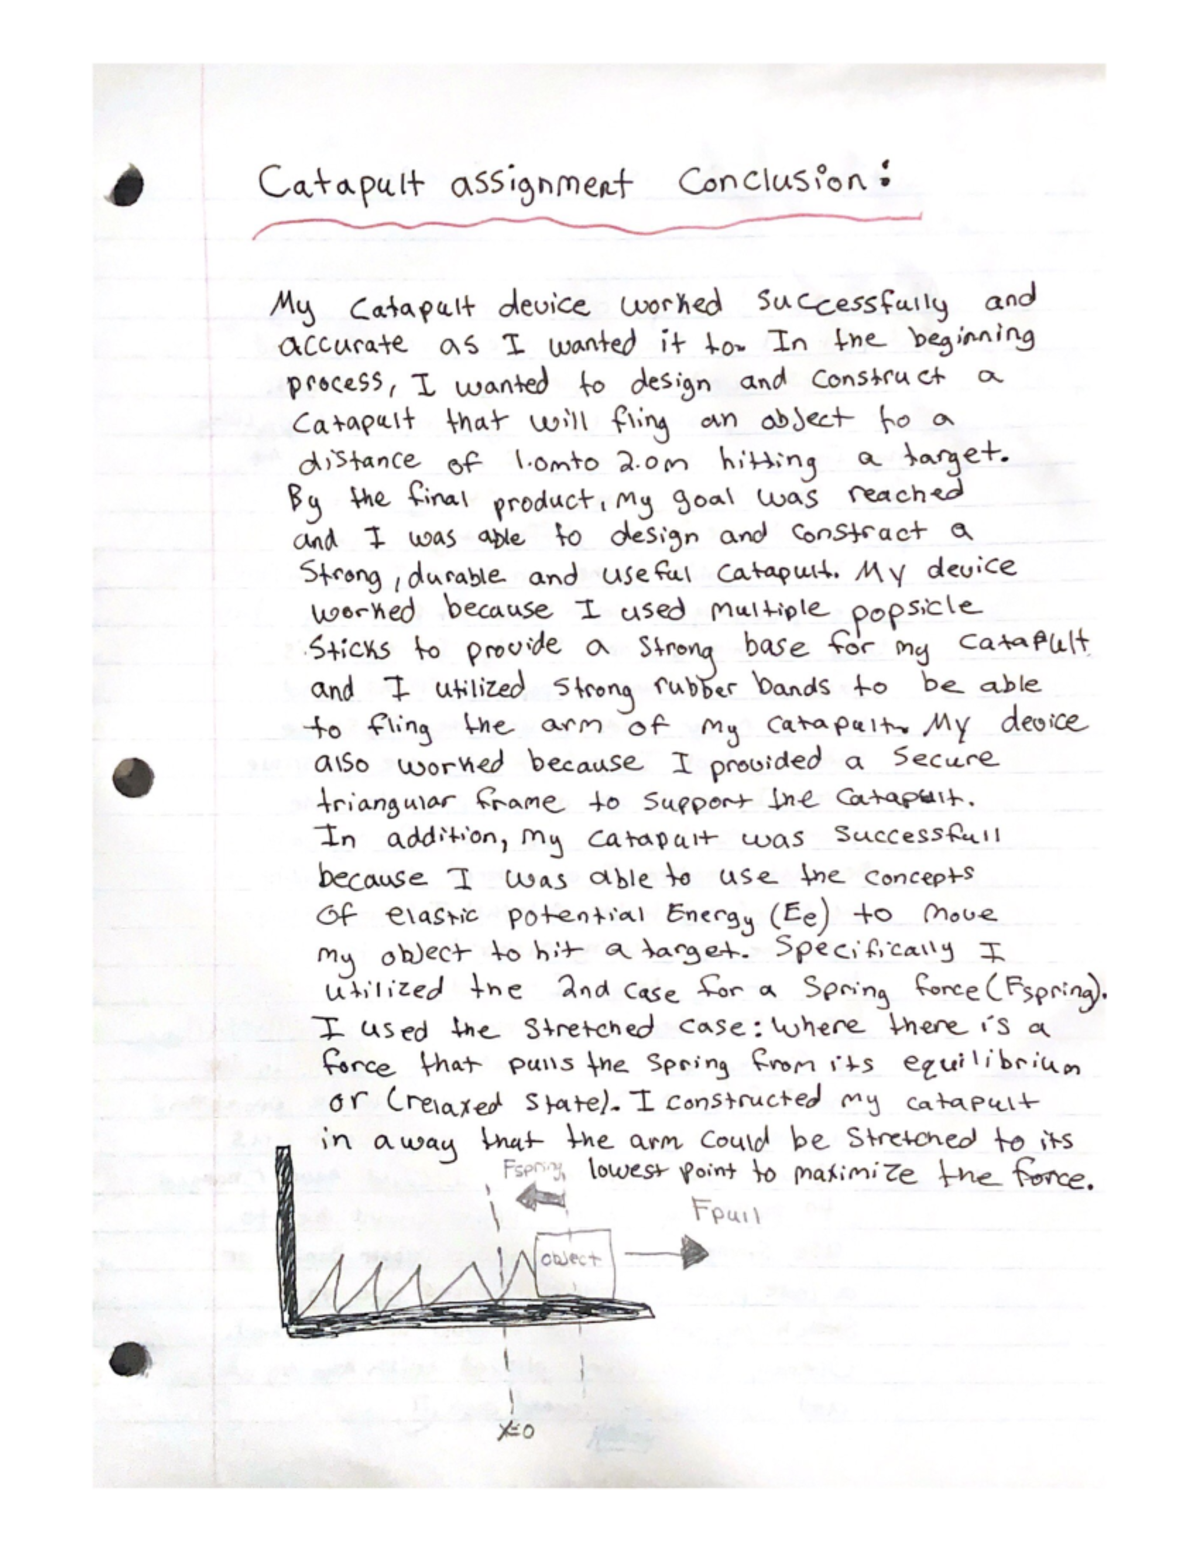 Catapult assignment Conclusion:
My Catapult device worked Successfully and
accurate as I wanted it to. In the beginning
process, I wanted to design and Construct a
Catapult that will fling an object to a
distance of 1.0m to 2.0m hitting a target.
By the final product, my goal was reached
and I was able to design and Constract a
Strong, durable and useful Catapult. My device
worked because I used multiple popsicle
Sticks to provide a Strong base for my Catapult
and I utilized Strong rubber bands to be able
to fling the arm of my Catapult. My device
also worked because I provided a Secure
triangular frame to Support the Catapult.
In addition, my Catapult was Successfull
because I was able to use the Concepts
of elastic potential Energy (Ee) to move
my object to hit a target. Specifically I
utilized the 2nd case for a Spring force (Fspring).
I used the Stretched Case: Where there is a
force that pulls the Spring from its equilibrium
or (relaxed State). I Constructed my catapult
in a way that the arm Could be Stretched to its
lowest point to maximize the force.
Fspring
Fpull
object
x=0